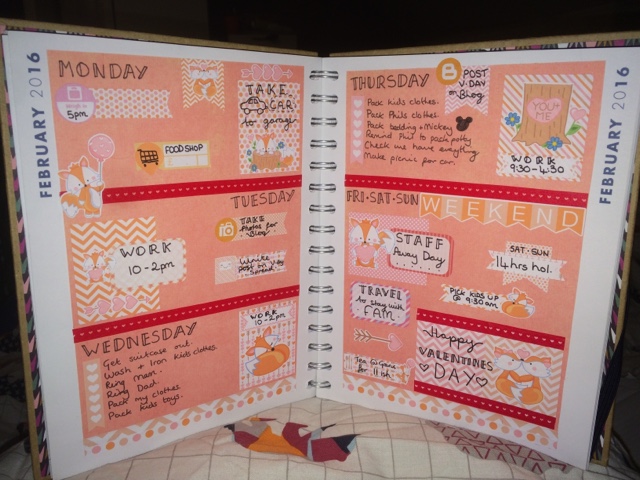 FEBRUARY 2016
MONDAY
weigh in
5pm
FOODSHOP
TAKE
CAR
to garage
TUESDAY
WORK
10-2pm
TAKE
Photos for
Blog
Write
post on V-day
Spread
WEDNESDAY
Get suitcase out.
Wash + Iron kids clothes.
Ring Mam.
Ring Dad.
Pack my clothes.
Pack kids toys.
WORK
10-2pm
THURSDAY
Pack kids clothes.
Pack Phils clothes.
Pack bedding + Mickey
Remind Phil to pack potty
Check we have everything
Make picnic for car.
B
POST
V.DAY
on Blog
YOU +
ME
WORK
9:30-4:30
FEBRUARY 2016
FRI·SAT·SUN
WEEKEND
STAFF
Away Day
SAT-SUN
14hrs hol.
TRAVEL
to stay with
FAM
PICK KIDS UP
@ 9:30am
for 11ish.
Happy
VALENTINES
DAY